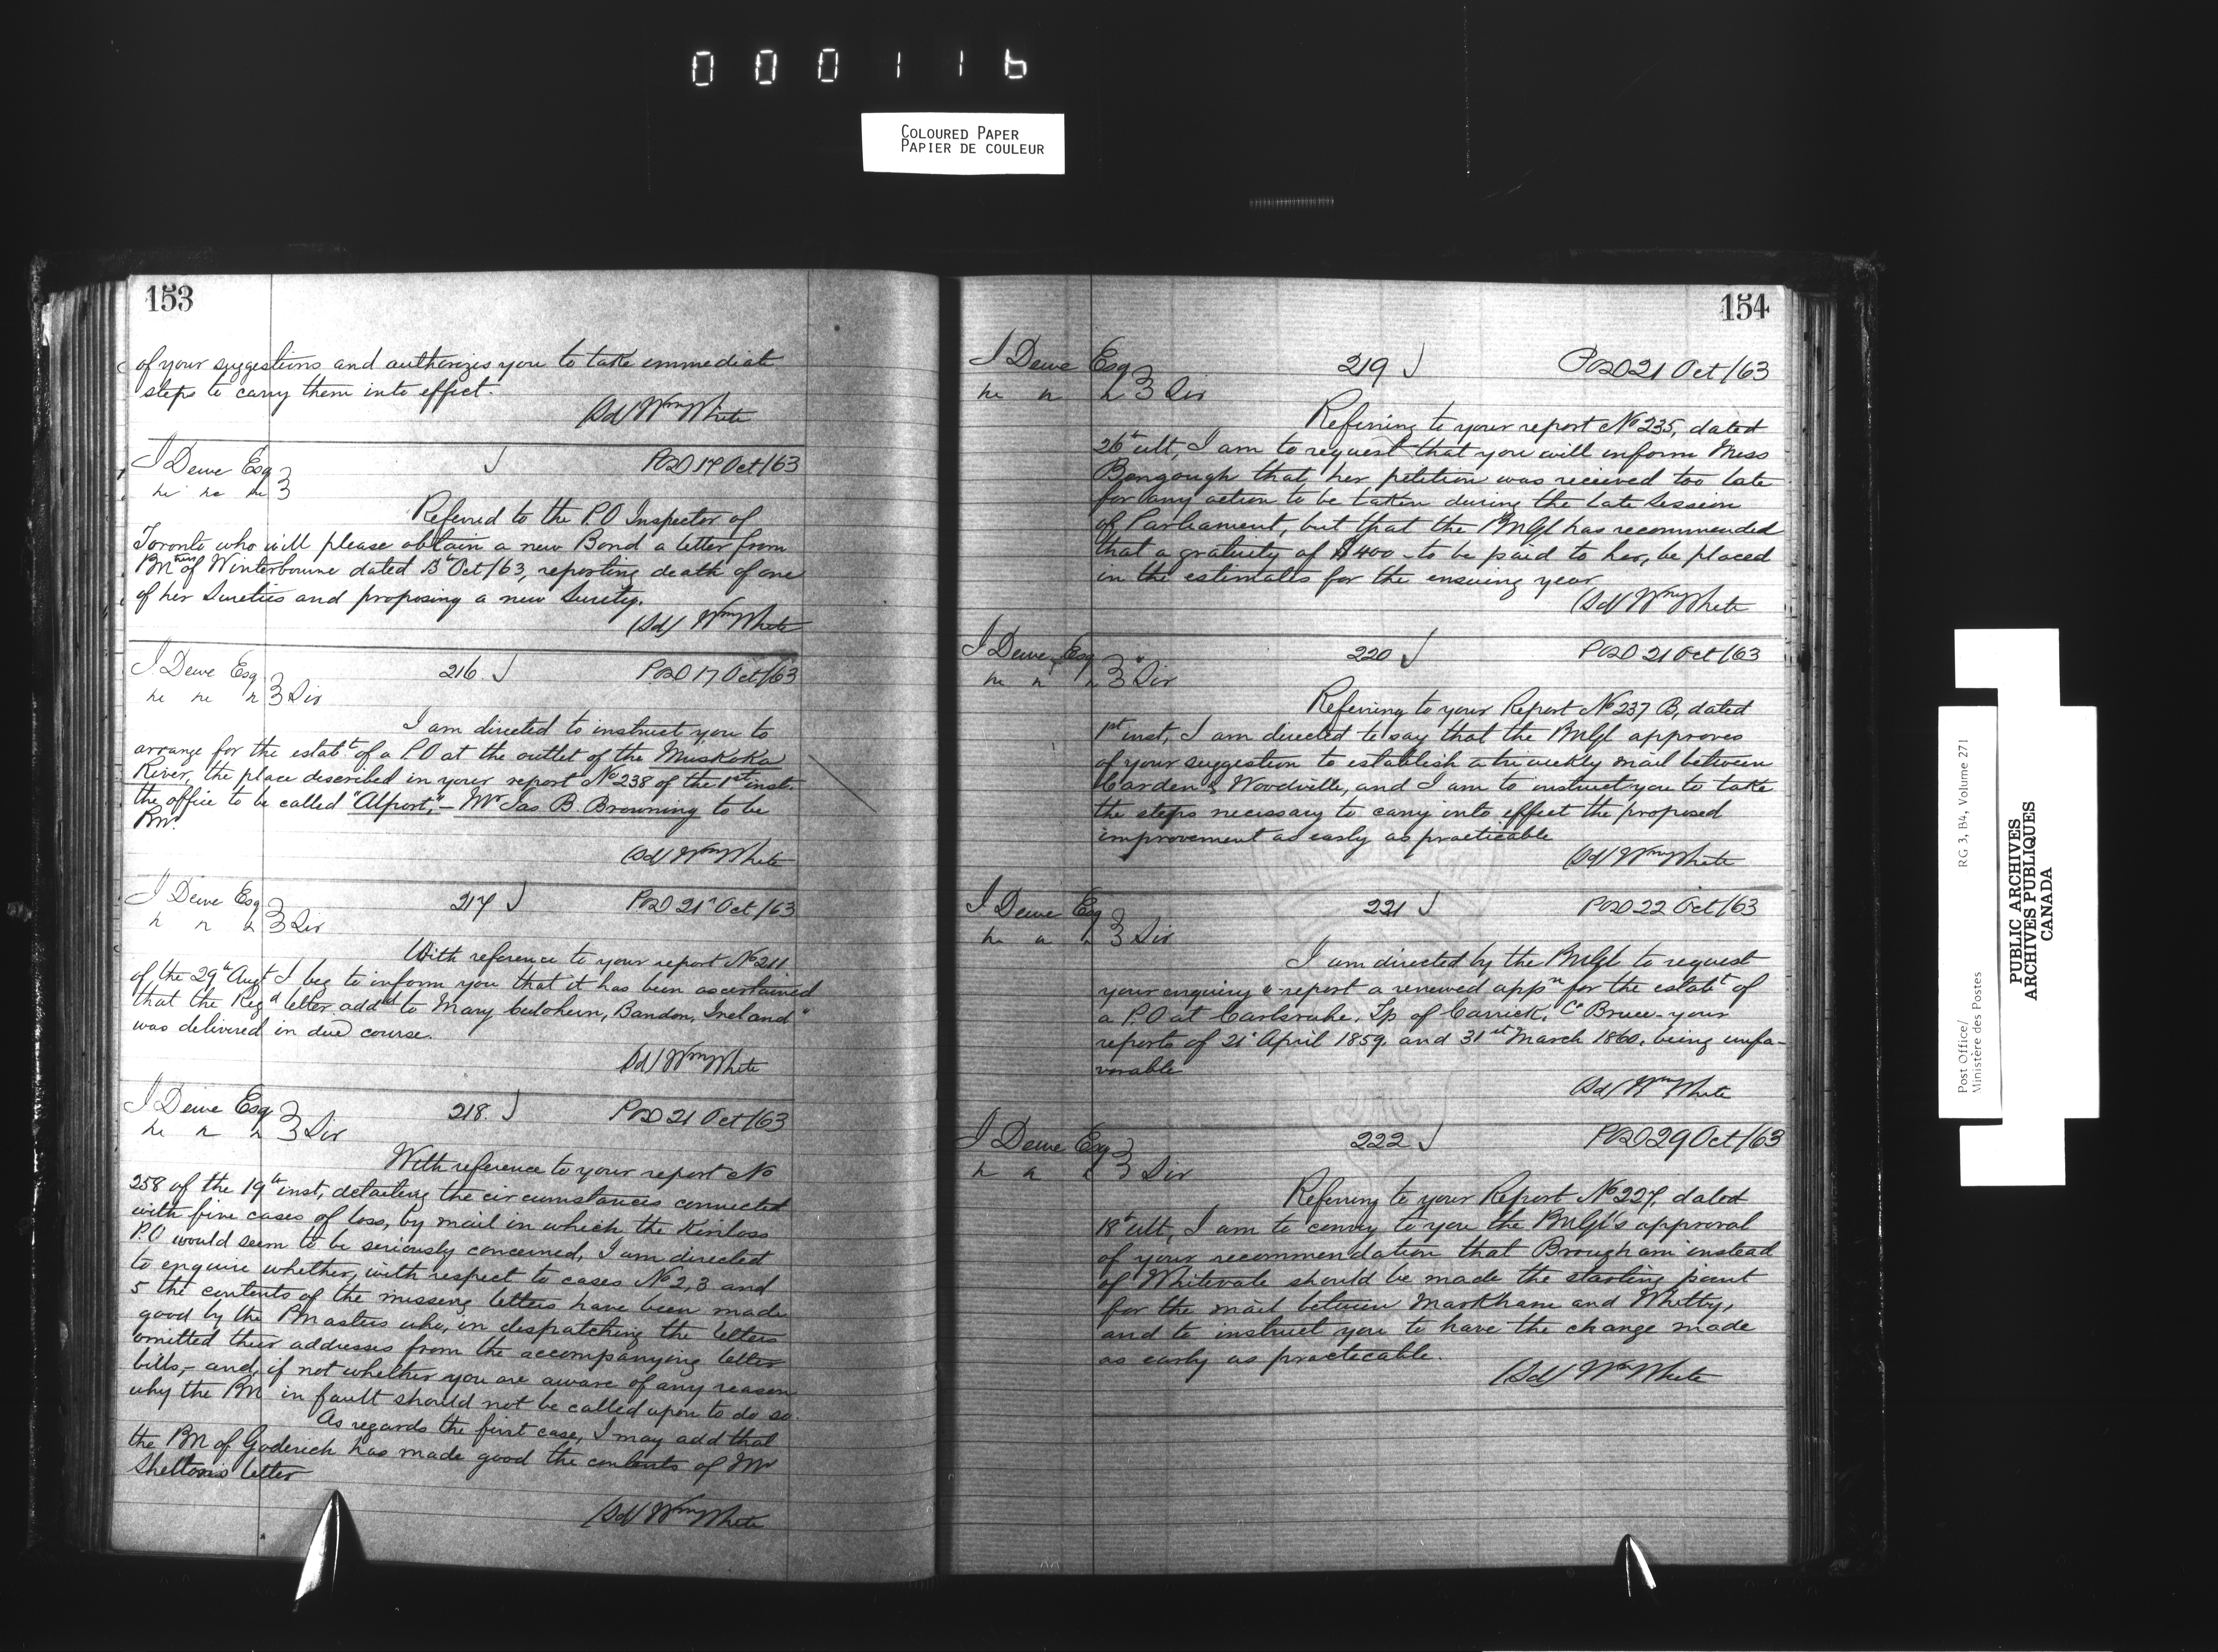 000116
COLOURED PAPER
PAPIER DE COULEUR
153
of your suggestions and authorizes you to take immediate
steps to carry them into effect.
(Sd) Wm White
J Dewe Esq POD 17 Oct/63
Referred to the P.O Inspector of
Toronto who will please obtain a new Bond a letter from
of Winterbourne dated 13th Oct/63, reporting death of one
of her Sureties and proposing a new Surety.
(Sd) Wm White
J Dewe Esq 216. POD 17 Oct/63
Sir
I am directed to instruct you to
arrange for the estabt of a P.O at the outlet of the Muskoka
River, the place described in your report No 238 of the 1st inst.
the office to be called "Alport,"— Mr Jas B. Browning to be
PMr.
(Sd) Wm White
J Dewe Esq 217 POD 21st Oct/63
Sir
With reference to your report No 211
of the 29th Augt I beg to inform you that it has been ascertained
that the Regd letter addd to Mary, Bandon, Ireland"
was delivered in due course.
(Sd) Wm White
J Dewe Esq 218. POD 21 Oct/63
Sir
With reference to your report No
258 of the 19th inst, detailing the circumstances connected
with five cases of loss, by mail in which the Kinloss
P.O would seem to be seriously concerned, I am directed
to enquire whether, with respect to cases No 2, 3 and
5 the contents of the missing letters have been made
good by the PMasters who, in despatching the letters
omitted their addresses from the accompanying letter
bills,- and, if not whether you are aware of any reason
why the PM in fault should not be called upon to do so.
As regards the first case, I may add that
the PM of Goderich has made good the contents of Mr
Shelton's letter
(Sd) Wm White
154
J Dewe Esq 219 POD 21 Oct/63
Sir
Referring to your report No 235, dated
26th ult, I am to request that you will inform Miss
Bengough that, her petition was received too late
for any action to be taken during the late Session
of Parliament, but that the PMGl has recommended
that a gratuity of $400 - to be paid to her, be placed
in the estimates for the ensuing year
(Sd) Wm White
J Dewe Esq 220 POD 21 Oct/63
Sir
Referring to your Report No 237 B, dated
1st inst, I am directed to say that the PMGl approves
of your suggestion to establish a tri weekly mail between
Carden & Woodville, and I am to instruct you to take
the steps necessary to carry into effect the proposed
improvement as early as practicable
(Sd) Wm White
J Dewe Esq 221 POD 22 Oct/63
Sir
I am directed by the PMGl to request
your enquiry & report a renewed appn for the estabt of
a P.O at Carlsruhe, Tp of Carrick, Co Bruce - your
reports of 21st April 1859, and 31st March 1860, being unfa-
vorable
(Sd) Wm White
J Dewe Esq 222 POD 29 Oct/63
Sir
Referring to your Report No 227, dated
18th ult, I am to convey to you the PMGl's approval
of your recommendation that Brougham instead
of Whitevale should be made the starting point
for the mail between Markham and Whitby,
and to instruct you to have the change made
as early as practicable.
(Sd) Wm White
Post Office/ RG 3, B4, Volume 271
Ministère des Postes
PUBLIC ARCHIVES
ARCHIVES PUBLIQUES
CANADA